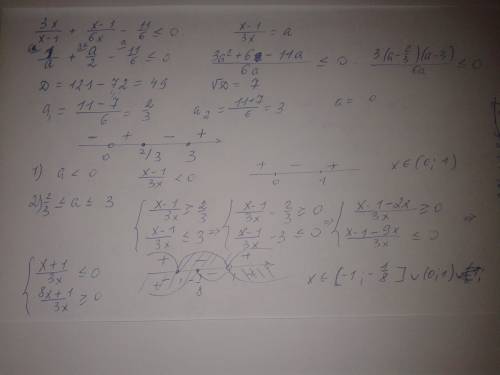 3x/(x-1) + (x-1)/(6x) - 11/6 ≤ 0    (x-1)/(3x) = a
1/a + a/2 - 11/6 ≤ 0    (3a² + 6 - 11a)/(6a) ≤ 0    3(a - 2/3)(a-3)/(6a) ≤ 0
D = 121 - 72 = 49    √D = 7
a₁ = (11-7)/6 = 2/3    a₂ = (11+7)/6 = 3    a = 0
- + - +
0 2/3 3
1) a < 0    (x-1)/(3x) < 0    + - +    0 1    x ∈ (0; 1)
2) 2/3 ≤ a ≤ 3    { (x-1)/(3x) ≥ 2/3 ; (x-1)/(3x) ≤ 3 ⇒ { (x-1)/(3x) - 2/3 ≥ 0 ; (x-1)/(3x) - 3 ≤ 0 ⇒ { (x-1-2x)/(3x) ≥ 0 ; (x-1-9x)/(3x) ≤ 0 ⇒
{ (x+1)/(3x) ≤ 0 ; (8x+1)/(3x) ≥ 0    x ∈ [-1; -1/8] ∪ (0; 1)